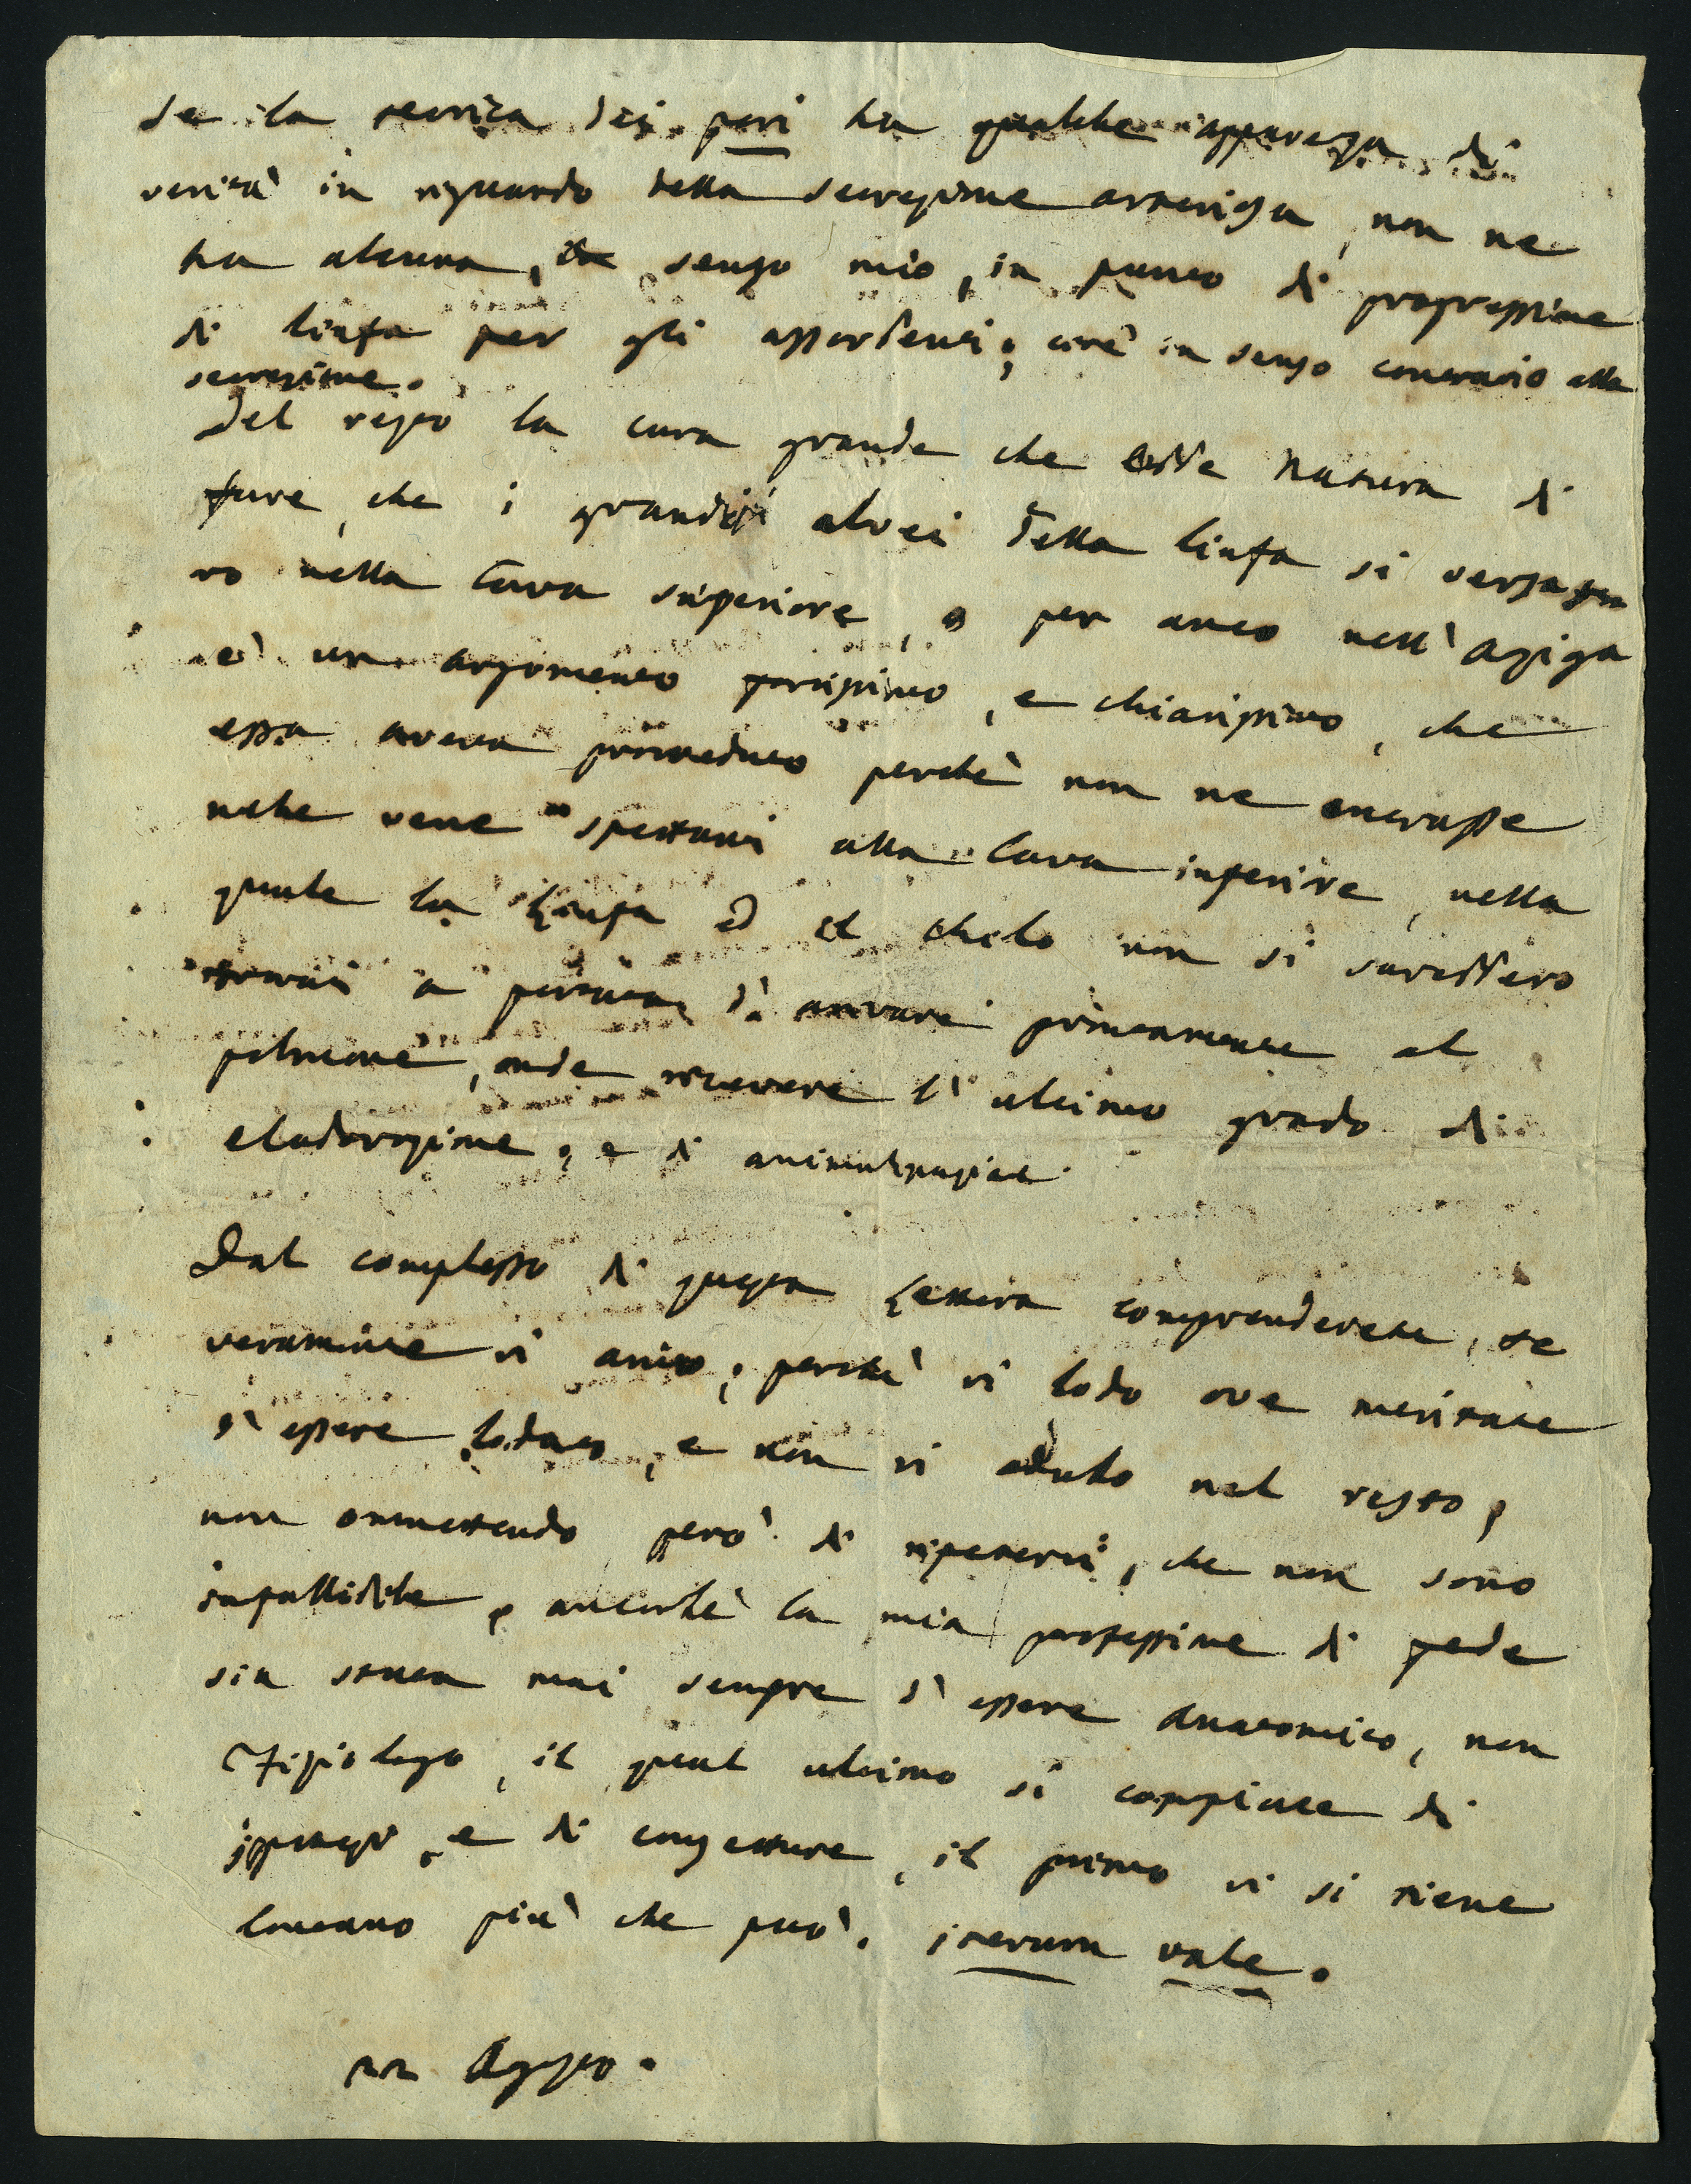 Se la teorica dei pori ha qualche apparenza di
verità in riguardo della secrezione arteriosa, non ne
ha alcuna, senso mio, in punto di progressione
di linfa per gli assorbenti; cioè in senso contrario alla
secrezione.
Del resto la cura grande che ebbe natura di
fare, che i grandi alvei della linfa si versasse
ro nella Cava superiore, o per anco nell'Aziga
è un argomento fortissimo, e chiarissimo, che
essa aveva provveduto perchè non ne entrasse
nelle vene spettanti alla Cava inferiore, nella
quale la Linfa ed il chilo non si sarebbero
trovati a portata di arrivare prontamente al
polmone, onde ricevere l'ultimo grado di
elaborazione, e di animalizzazione.
Dal complesso di questa Lettera comprenderete, se
veramente vi amo; perchè vi lodo ove meritate
d'essere lodato, e non vi adulo nel resto;
non ommettendo però di ripetervi, che non sono
infallibile, ancorchè la mia professione di fede
sia stata mai sempre d'essere Anatomico, non
Fisiologo, il qual ultimo si compiace di
ippotesi, e di congetture, il primo vi si tiene
lontano più che può. iterum vale.
22 Agosto.